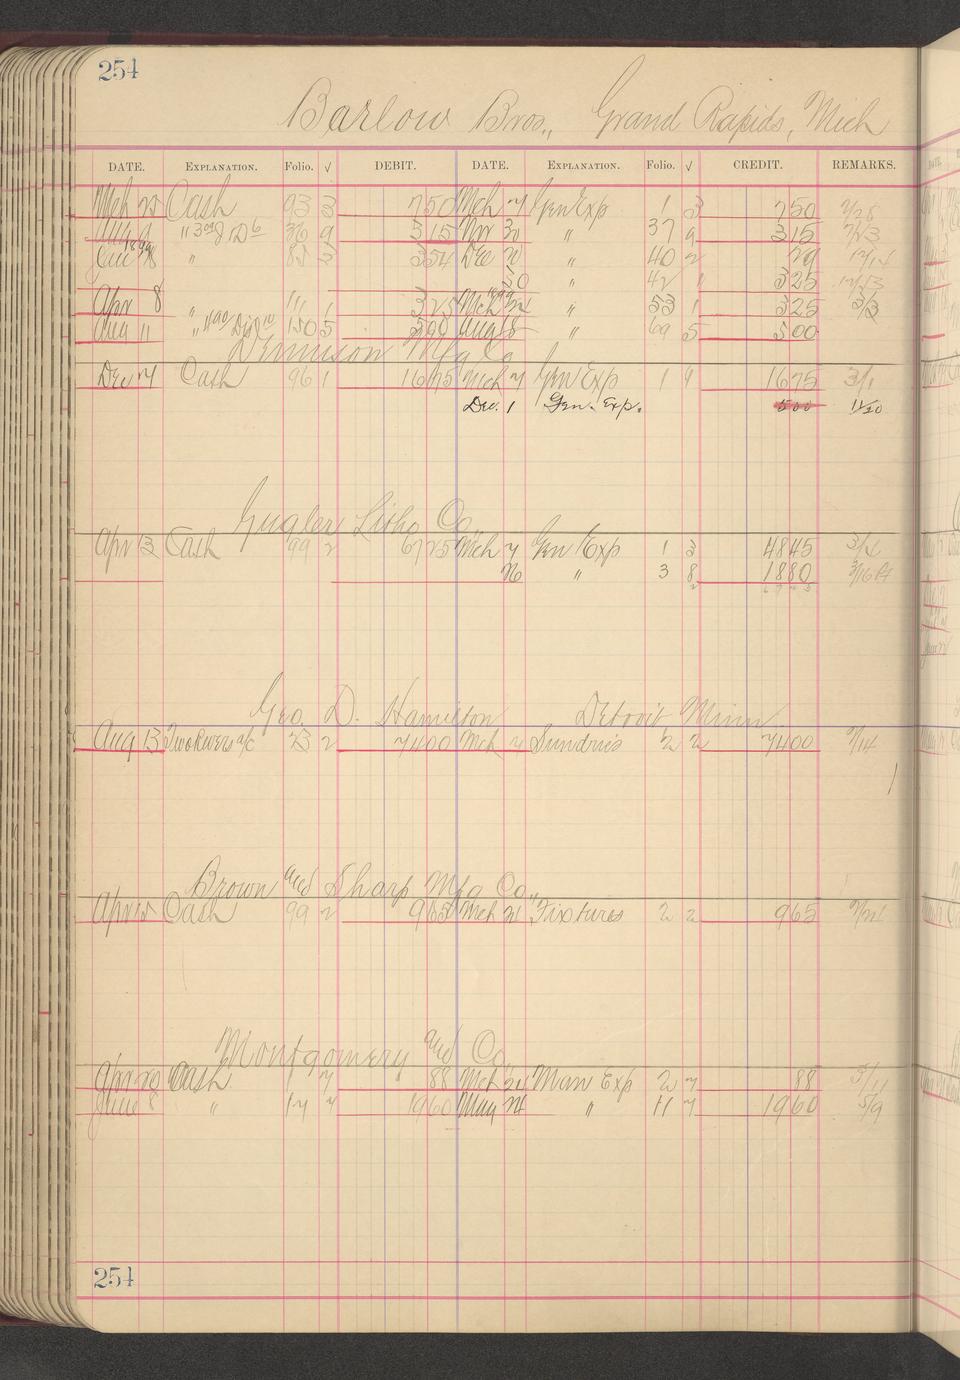 254
Barlow Bros., Grand Rapids, Mich
DATE. EXPLANATION. Folio. √ DEBIT. DATE. EXPLANATION. Folio. √ CREDIT. REMARKS.
Mch 25 Cash 93 3 750 Mch 7 Gen Exp 1 3 750 2/28
Aug 9 " 36 9 315 Nov 30 " 37 9 315
" 354 Dec 20 " 40 2 29 12/14
30 " 42 " 325
Apr 8 " 111 1 325 Mch 24 " 53 1 325 3/3
Aug 11 " 150 5 500 Aug 8 " 69 5 500
Dennison Mfg Co
Dec 4 Cash 96 1 1675 Mch 7 Gen Exp 1 9 1675 3/1
Dec. 1 Gen. Exp. 500 11/20
Gugler Litho Co.,
Apr 13 Cash 99 2 6725 Mch 7 Gen Exp 1 3 4845 3/4
26 " 3 8 1880 3/16
2 6725
Geo. D. Hamilton Detroit Minn
Aug 13 Two Rivers a/c 23 2 7400 Mch 7 Sundries 2 2 7400
Brown and Sharp Mfg Co.,
Apr 15 Cash 99 2 965 Mch 21 Fixtures 2 2 965
Montgomery and Co.
Apr 20 Cash 1 7 88 Mch 24 Man Exp 2 7 88
June 8 " 17 7 1960 May 24 " 11 7 1960 5/9
254